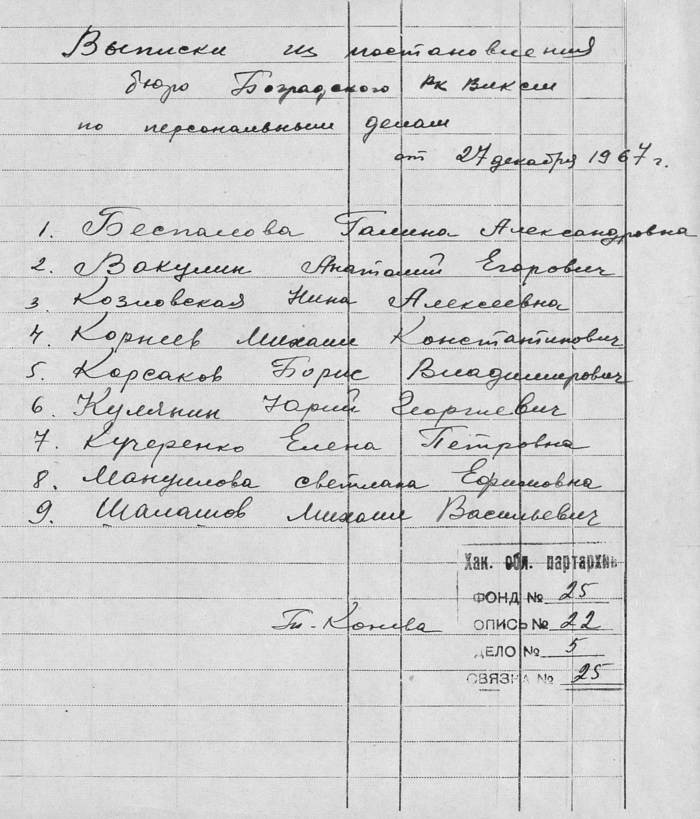 Выписки из постановления
бюро Боградского РК ВЛКСМ
по персональным делам
от 27 декабря 1967 г.
1. Беспалова Галина Александровна
2. Вакулин Анатолий Егорович
3. Козловская Нина Алексеевна
4. Корнеев Михаил Константинович
5. Корсаков Борис Владимирович
6. Кулянин Юрий Георгиевич
7. Кучеренко Елена Петровна
8. Мануилова Светлана Ефимовна
9. Шалашов Михаил Васильевич
Хак. обл. партархив
ФОНД № 25
ОПИСЬ № 22
ДЕЛО № 5
СВЯЗКА № 25